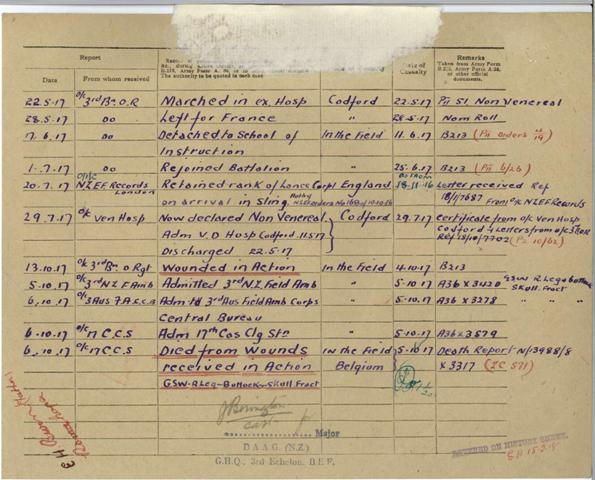 Report
Remarks
Taken from Army Form
B.213, Army Form A.36,
or other official
documents.
The authority to be quoted in each case
Date From whom received
Casualty
22.5.17 O/C 3rd Bn. O.R Marched in ex. Hosp Codford 22.5.17 Pii 51. Non Venereal
28.5.17 Do Left for France " 28.5.17 Nom Roll
17.6.17 Do Detached to School of In the Field 11.6.17 B213 (Pii orders
Instruction
1.7.17 Do Rejoined Battalion " 25.6.17 B213 (Pii 6/26)
20.7.17 NZEF Records London Retained rank of Lance Corpl England 18.11.16 Letter received Ref
on arrival in Sling 18/1/7687 From O/C NZEF Records
29.7.17 O/C Ven Hosp Now declared Non Venereal Codford 29.7.17 Certificate from O/C Ven Hosp
Adm V.D Hosp Codford 11.5.17 Codford & Letters from O/C
Discharged 22.5.17 Ref 18/10/7702 (Pii 10/62)
13.10.17 O/C 3rd Bn. O Rgt Wounded in Action In the Field 4.10.17 B213
5.10.17 O/C 3rd N.Z.F. Amb Admitted 3rd N.Z. Field Amb " 5.10.17 A36 x 3420 GSW R Leg & buttock Skull. Fract
6.10.17 O/C 3 Aus F.A.C.C.B Adm to 3rd Aus Field Amb Corps " 5.10.17 A36 x 3278 " "
Central Bureau
6.10.17 O/C 17 C.C.S Adm 17th Cas Clg Stn " 5.10.17 A36 x 3579
6.10.17 O/C 17 C.C.S Died from Wounds In the Field 5.10.17 Death Report N/13988/8
received in Action Belgium x 3317 (ZC 571)
GSW-R Leg-Buttock-Skull Fract
Capt
Major
D.A.A.G. (N.Z.)
G.H.Q., 3rd Echelon, B.E.F.
ENTERED ON HISTORY SHEET.